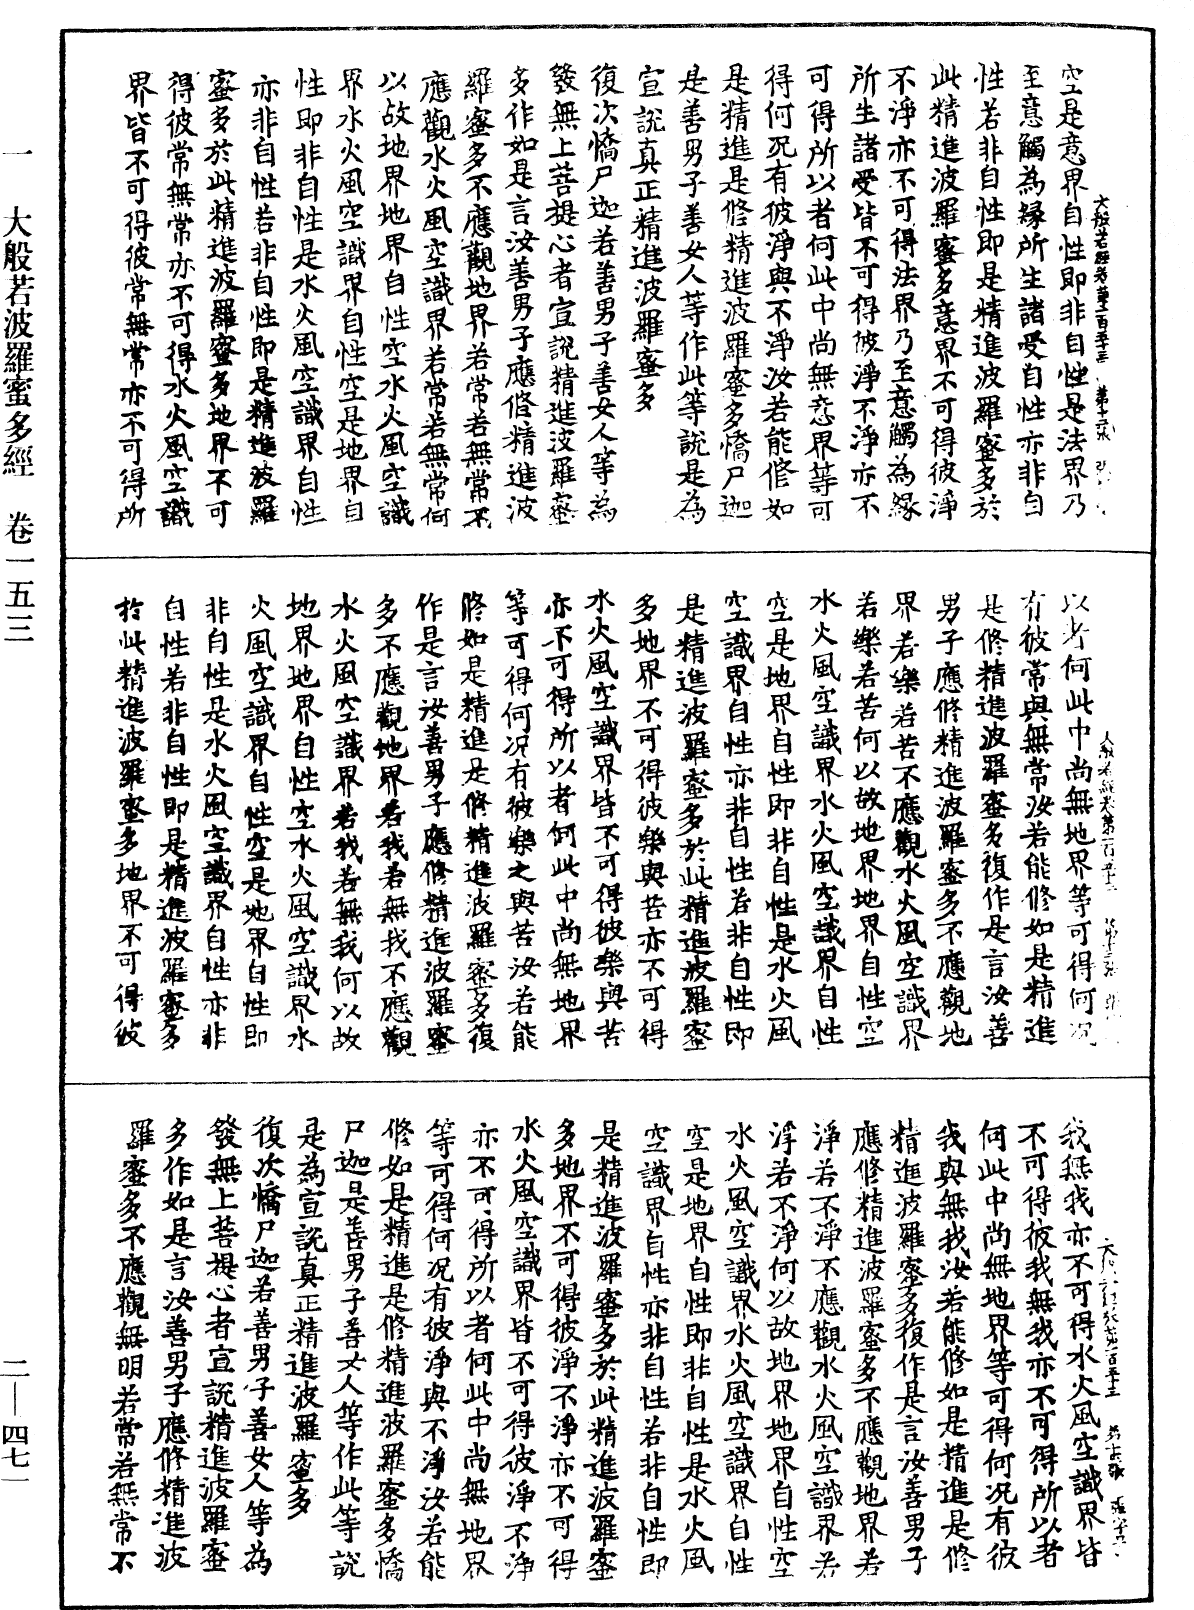 空是意界自性即非自性是法界乃
至意觸為緣所生諸受自性亦非自
性若非自性即是精進波羅蜜多於
此精進波羅蜜多意界不可得彼淨
不淨亦不可得法界乃至意觸為緣
所生諸受皆不可得彼淨不淨亦不
可得所以者何此中尚無意界等可
得何況有彼淨與不淨汝若能修如
是精進是修精進波羅蜜多憍尸迦
是善男子善女人等作此等說是為
宣說真正精進波羅蜜多
復次憍尸迦若善男子善女人等為
發無上菩提心者宣說精進波羅蜜
多作如是言汝善男子應修精進波
羅蜜多不應觀地界若常若無常不
應觀水火風空識界若常若無常何
以故地界地界自性空水火風空識
界水火風空識界自性空是地界自
性即非自性是水火風空識界自性
亦非自性若非自性即是精進波羅
蜜多於此精進波羅蜜多地界不可
得彼常無常亦不可得水火風空識
界皆不可得彼常無常亦不可得所
以者何此中尚無地界等可得何況
有彼常與無常汝若能修如是精進
是修精進波羅蜜多復作是言汝善
男子應修精進波羅蜜多不應觀地
界若樂若苦不應觀水火風空識界
若樂若苦何以故地界地界自性空
水火風空識界水火風空識界自性
空是地界自性即非自性是水火風
空識界自性亦非自性若非自性即
是精進波羅蜜多於此精進波羅蜜
多地界不可得彼樂與苦亦不可得
水火風空識界皆不可得彼樂與苦
亦不可得所以者何此中尚無地界
等可得何況有彼樂之與苦汝若能
修如是精進是修精進波羅蜜多復
作是言汝善男子應修精進波羅蜜
多不應觀地界若我若無我不應觀
水火風空識界若我若無我何以故
地界地界自性空水火風空識界水
火風空識界自性空是地界自性即
非自性是水火風空識界自性亦非
自性若非自性即是精進波羅蜜多
於此精進波羅蜜多地界不可得彼
我無我亦不可得水火風空識界皆
不可得彼我無我亦不可得所以者
何此中尚無地界等可得何況有彼
我與無我汝若能修如是精進是修
精進波羅蜜多復作是言汝善男子
應修精進波羅蜜多不應觀地界若
淨若不淨不應觀水火風空識界若
淨若不淨何以故地界地界自性空
水火風空識界水火風空識界自性
空是地界自性即非自性是水火風
空識界自性亦非自性若非自性即
是精進波羅蜜多於此精進波羅蜜
多地界不可得彼淨不淨亦不可得
水火風空識界皆不可得彼淨不淨
亦不可得所以者何此中尚無地界
等可得何況有彼淨與不淨汝若能
修如是精進是修精進波羅蜜多憍
尸迦是善男子善女人等作此等說
是為宣說真正精進波羅蜜多
復次憍尸迦若善男子善女人等為
發無上菩提心者宣說精進波羅蜜
多作如是言汝善男子應修精進波
羅蜜多不應觀無明若常若無常不
一 大般若波羅蜜多經 卷一五三
二—四七一